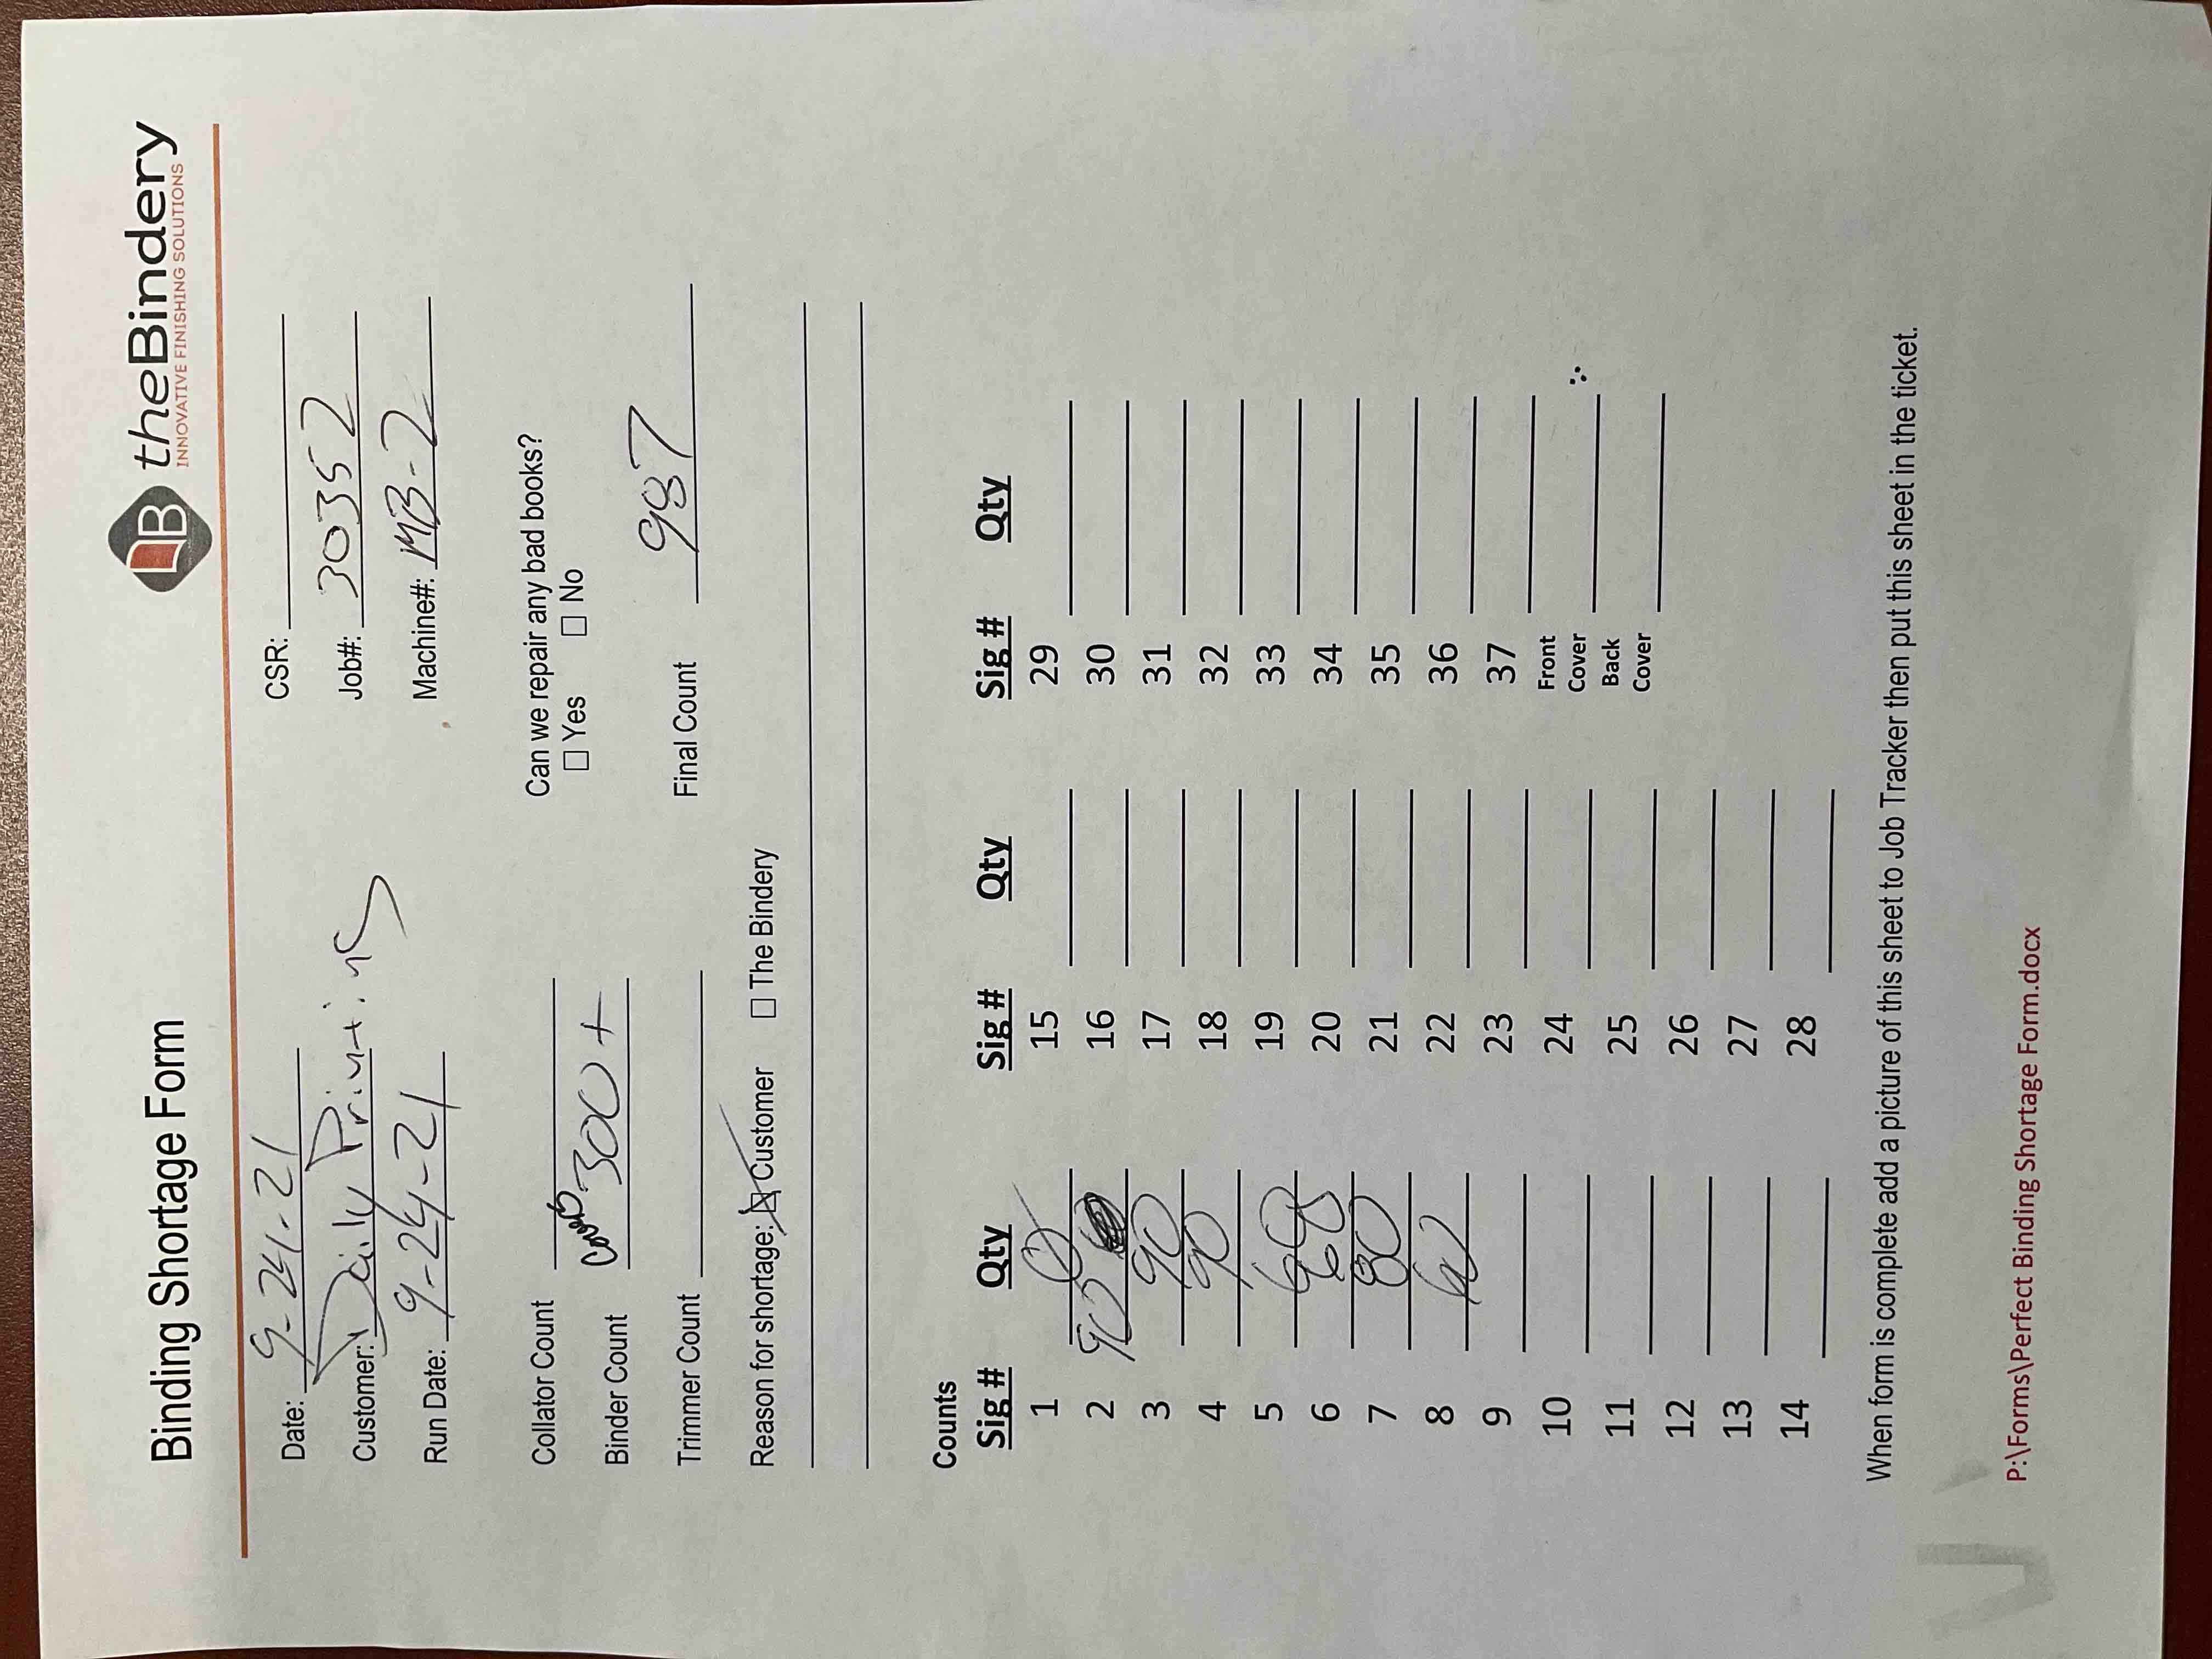 Binding Shortage Form
theBindery
INNOVATIVE FINISHING SOLUTIONS
Date: 9-24-21 CSR:
Customer: Daily Printing Job#: 30352
Run Date: 9-24-21 Machine#: MB-2
Collator Count Can we repair any bad books?
☐ Yes ☐ No
Binder Count Covers 300+
Trimmer Count Final Count 987
Reason for shortage: ☒ Customer ☐ The Bindery
Counts
Sig # Qty Sig # Qty Sig # Qty
1 0 15 29
2 90 16 30
3 90 17 31
4 90 18 32
5 19 33
6 20 34
7 80 21 35
8 22 36
9 23 37
10 24 Front Cover
11 25 Back Cover
12 26
13 27
14 28
When form is complete add a picture of this sheet to Job Tracker then put this sheet in the ticket.
P:\Forms\Perfect Binding Shortage Form.docx